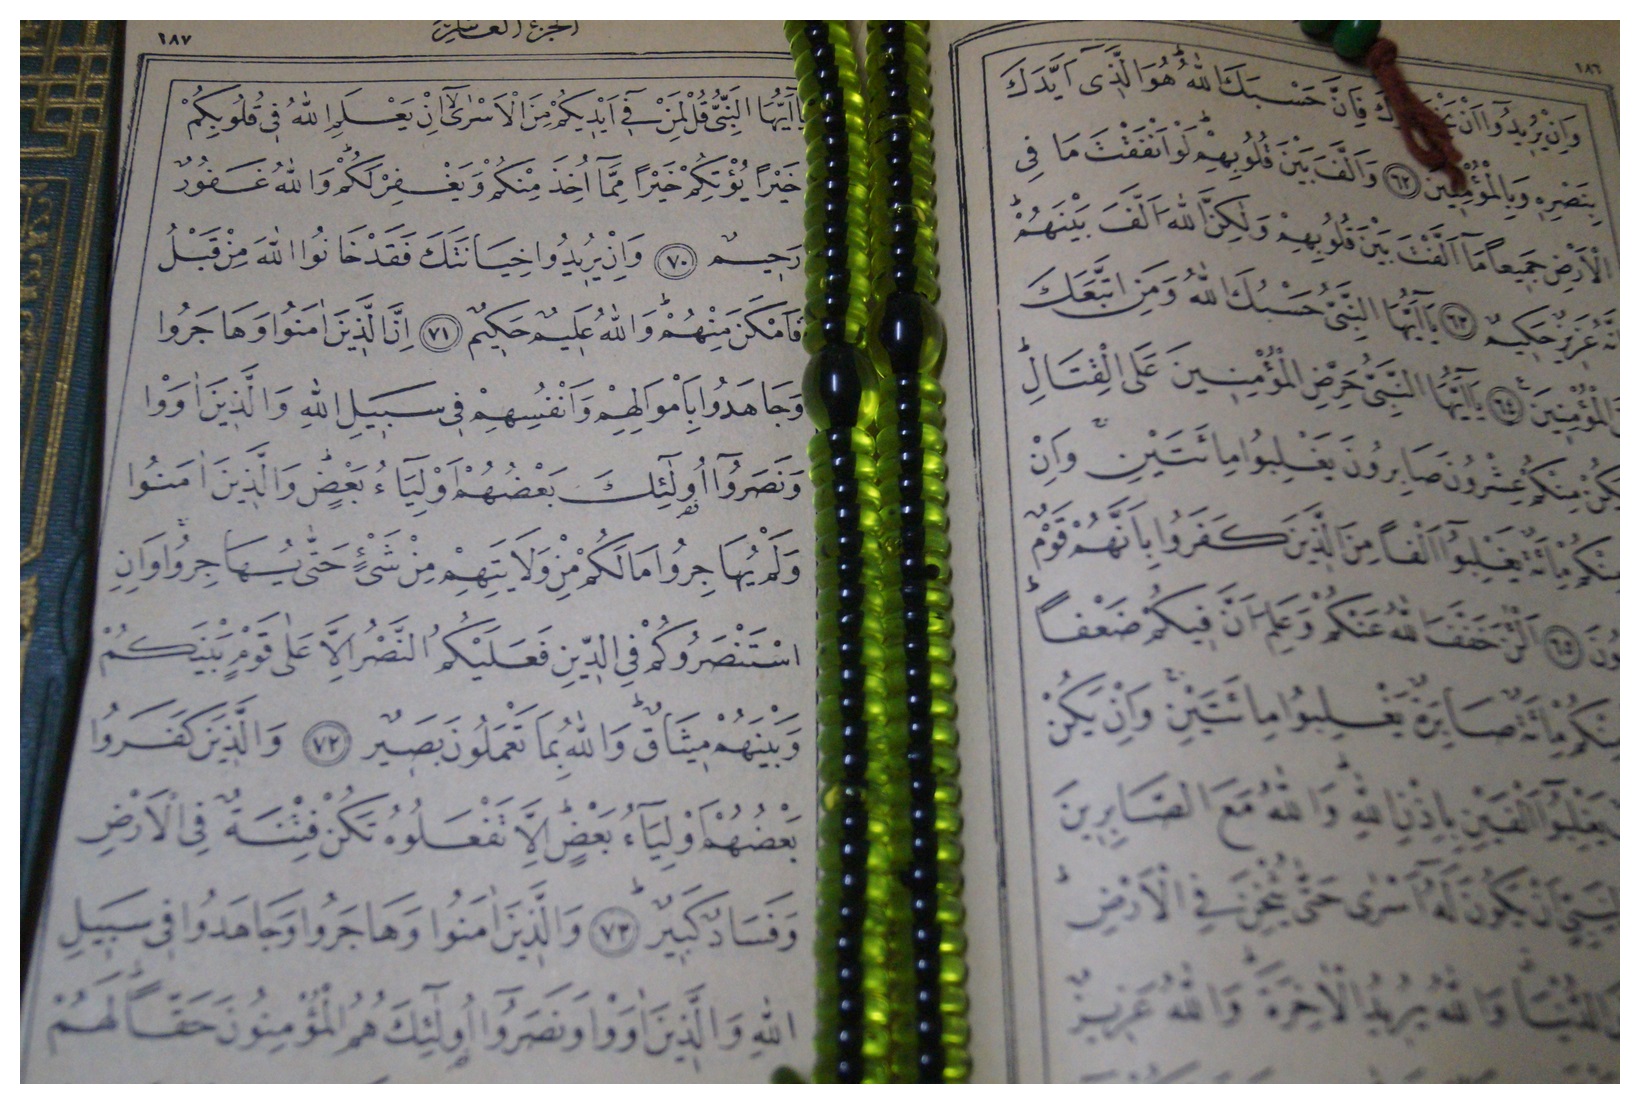 ١٨٦
وَاِنْ يُرِيدُٓوا اَنْ فَاِنَّ حَسْبَكَ اللّٰهُۜ هُوَ الَّذ۪ٓى اَيَّدَكَ
بِنَصْرِه۪ وَبِالْمُؤْمِن۪ينَ ﴿٦٢﴾ وَاَلَّفَ بَيْنَ قُلُوبِهِمْۜ لَوْ اَنْفَقْتَ مَا فِى
الْاَرْضِ جَم۪يعاً مَٓا اَلَّفْتَ بَيْنَ قُلُوبِهِمْ وَلٰكِنَّ اللّٰهَ اَلَّفَ بَيْنَهُمْۜ
اِنَّهُ عَز۪يزٌ حَك۪يمٌ ﴿٦٣﴾ يَٓا اَيُّهَا النَّبِىُّ حَسْبُكَ اللّٰهُ وَمَنِ اتَّبَعَكَ
الْمُؤْمِن۪ينَ ﴿٦٤﴾ يَٓا اَيُّهَا النَّبِىُّ حَرِّضِ الْمُؤْمِن۪ينَ عَلَى الْقِتَالِۜ
يَكُنْ مِنْكُمْ عِشْرُونَ صَابِرُونَ يَغْلِبُوا مِائَتَيْنِۚ وَاِنْ
مِنْكُمْ مِائَةٌ يَغْلِبُٓوا اَلْفاً مِنَ الَّذ۪ينَ كَفَرُوا بِاَنَّهُمْ قَوْمٌ
﴿٦٥﴾ اَلْـٰٔنَ خَفَّفَ اللّٰهُ عَنْكُمْ وَعَلِمَ اَنَّ ف۪يكُمْ ضَعْفاًۜ
مِنْكُمْ مِائَةٌ صَابِرَةٌ يَغْلِبُوا مِائَتَيْنِۚ وَاِنْ يَكُنْ
يَغْلِبُٓوا اَلْفَيْنِ بِاِذْنِ اللّٰهِۜ وَاللّٰهُ مَعَ الصَّابِر۪ينَ
اَنْ يَكُونَ لَهُٓ اَسْرٰى حَتّٰى يُثْخِنَ فِى الْاَرْضِۜ
الدُّنْيَاۗ وَاللّٰهُ يُر۪يدُ الْاٰخِرَةَۜ وَاللّٰهُ عَز۪يزٌ
١٨٧
الجزء العاشر
يَٓا اَيُّهَا النَّبِىُّ قُلْ لِمَنْ ف۪ٓى اَيْد۪يكُمْ مِنَ الْاَسْرٰٓىۙ اِنْ يَعْلَمِ اللّٰهُ ف۪ى قُلُوبِكُمْ
خَيْراً يُؤْتِكُمْ خَيْراً مِمَّٓا اُخِذَ مِنْكُمْ وَيَغْفِرْ لَكُمْۜ وَاللّٰهُ غَفُورٌ
رَح۪يمٌ ﴿٧٠﴾ وَاِنْ يُر۪يدُوا خِيَانَتَكَ فَقَدْ خَانُوا اللّٰهَ مِنْ قَبْلُ
فَاَمْكَنَ مِنْهُمْۜ وَاللّٰهُ عَل۪يمٌ حَك۪يمٌ ﴿٧١﴾ اِنَّ الَّذ۪ينَ اٰمَنُوا وَهَاجَرُوا
وَجَاهَدُوا بِاَمْوَالِهِمْ وَاَنْفُسِهِمْ ف۪ى سَب۪يلِ اللّٰهِ وَالَّذ۪ينَ اٰوَوْا
وَنَصَرُٓوا اُو۬لٰٓئِكَ بَعْضُهُمْ اَوْلِيَٓاءُ بَعْضٍۜ وَالَّذ۪ينَ اٰمَنُوا
وَلَمْ يُهَاجِرُوا مَا لَكُمْ مِنْ وَلَايَتِهِمْ مِنْ شَىْءٍ حَتّٰى يُهَاجِرُواۚ وَاِنِ
اسْتَنْصَرُوكُمْ فِى الدّ۪ينِ فَعَلَيْكُمُ النَّصْرُ اِلَّا عَلٰى قَوْمٍ بَيْنَكُمْ
وَبَيْنَهُمْ م۪يثَاقٌۜ وَاللّٰهُ بِمَا تَعْمَلُونَ بَص۪يرٌ ﴿٧٢﴾ وَالَّذ۪ينَ كَفَرُوا
بَعْضُهُمْ اَوْلِيَٓاءُ بَعْضٍۜ اِلَّا تَفْعَلُوهُ تَكُنْ فِتْنَةٌ فِى الْاَرْضِ
وَفَسَادٌ كَب۪يرٌۜ ﴿٧٣﴾ وَالَّذ۪ينَ اٰمَنُوا وَهَاجَرُوا وَجَاهَدُوا ف۪ى سَب۪يلِ
اللّٰهِ وَالَّذ۪ينَ اٰوَوْا وَنَصَرُٓوا اُو۬لٰٓئِكَ هُمُ الْمُؤْمِنُونَ حَقّاًۜ لَهُمْ